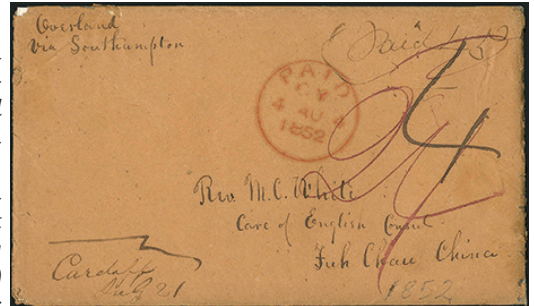 Overland
via Southampton
Paid
PAID
CY
4 AU 4
1852
4
Rev M.C. White
Care of English Consul
Fuh Chau China
Cardiff
1852